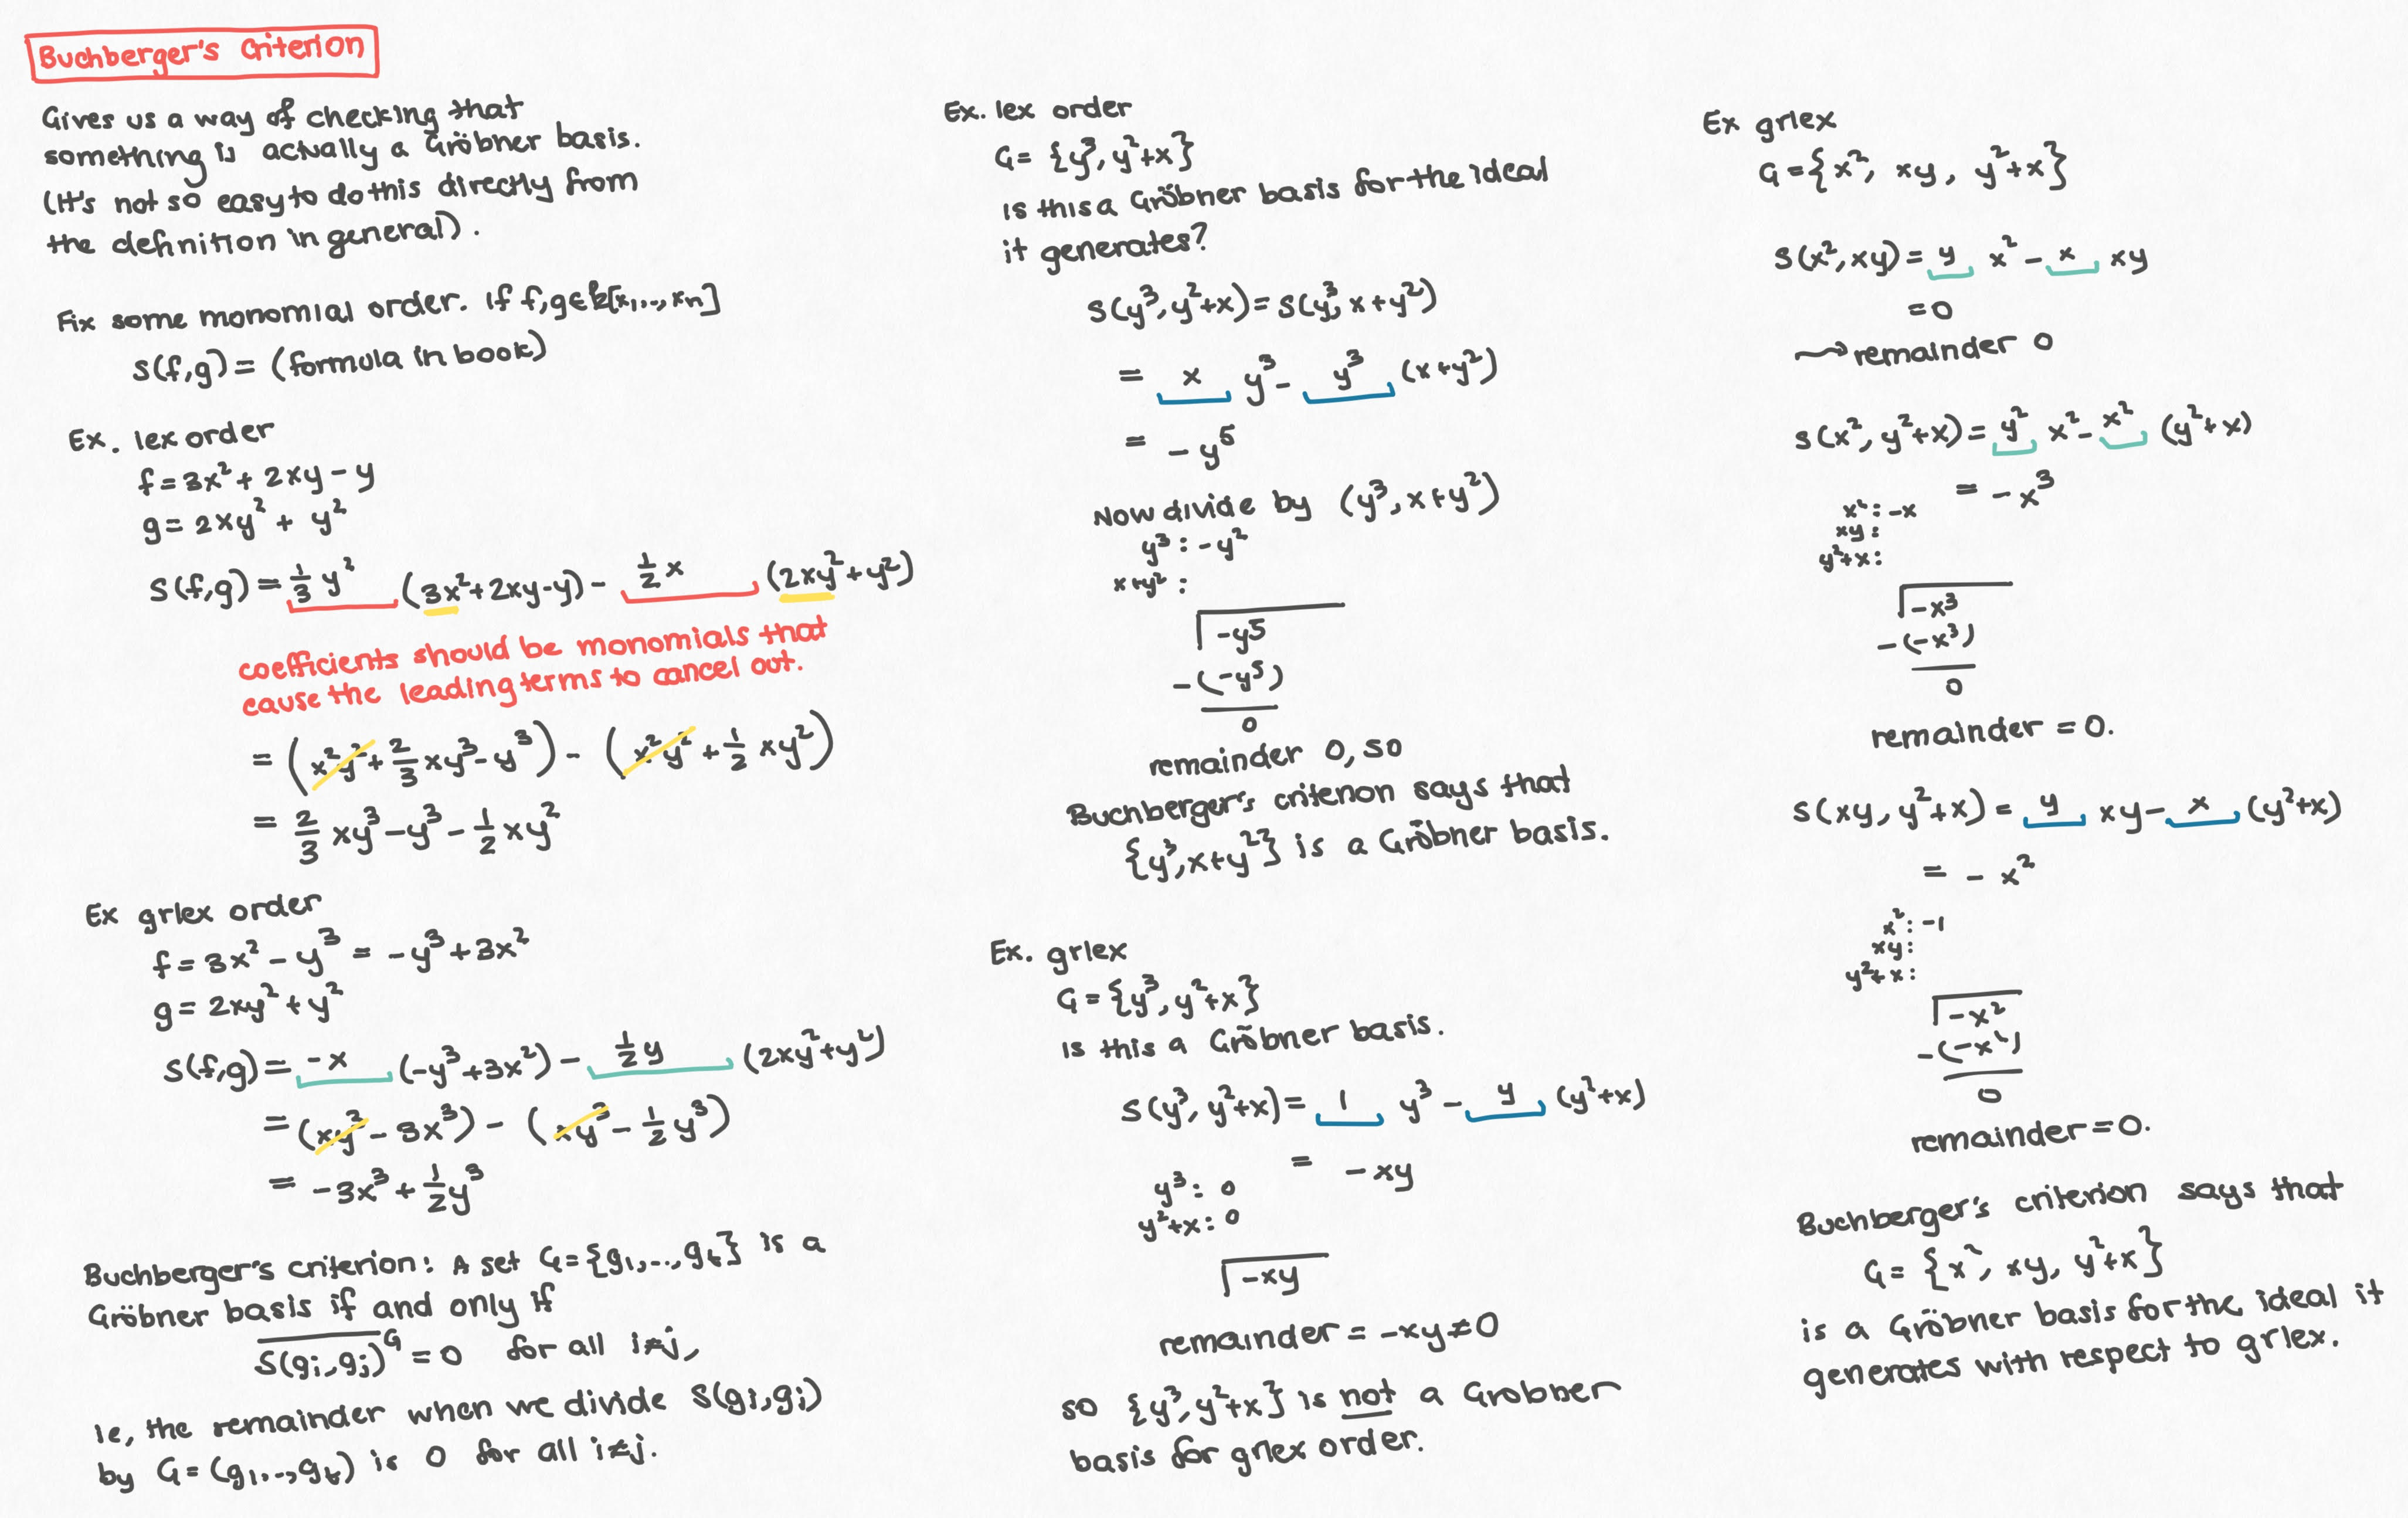 Buchberger's Criterion
Gives us a way of checking that
something is actually a Gröbner basis.
(It's not so easy to do this directly from
the definition in general).
Fix some monomial order. If f,g∈k[x₁,..,xₙ]
S(f,g) = (formula in book)
Ex. lex order
f = 3x² + 2xy - y
g = 2xy² + y²
S(f,g) = 1/3 y² (3x²+2xy-y) - 1/2 x (2xy²+y²)
coefficients should be monomials that
cause the leading terms to cancel out.
= (x²y² + 2/3 xy³ - y³) - (x²y² + 1/2 xy²)
= 2/3 xy³ - y³ - 1/2 xy²
Ex grlex order
f = 3x² - y³ = -y³ + 3x²
g = 2xy² + y²
S(f,g) = -x (-y³+3x²) - 1/2 y (2xy²+y²)
= (xy² - 3x³) - (xy³ - 1/2 y³)
= -3x³ + 1/2 y³
Buchberger's criterion: A set G={g₁,..,gₜ} is a
Gröbner basis if and only if
S(gᵢ,gⱼ)ᴳ = 0 for all i≠j,
ie, the remainder when we divide S(gᵢ,gⱼ)
by G=(g₁,..,gₜ) is 0 for all i≠j.
Ex. lex order
G = {y³, y²+x}
is this a Gröbner basis for the ideal
it generates?
S(y³, y²+x) = S(y³, x+y²)
= x y³ - y³ (x+y²)
= -y⁵
Now divide by (y³, x+y²)
y³: -y²
x+y²:
-y⁵
-(-y⁵)
0
remainder 0, so
Buchberger's criterion says that
{y³, x+y²} is a Gröbner basis.
Ex. grlex
G = {y³, y²+x}
is this a Gröbner basis.
S(y³, y²+x) = 1 y³ - y (y²+x)
= -xy
y³: 0
y²+x: 0
-xy
remainder = -xy≠0
so {y³, y²+x} is not a Grobner
basis for grlex order.
Ex grlex
G = {x², xy, y²+x}
S(x², xy) = y x² - x xy
= 0
⟿ remainder 0
S(x², y²+x) = y² x² - x² (y²+x)
= -x³
x²: -x
xy:
y²+x:
-x³
-(-x³)
0
remainder = 0.
S(xy, y²+x) = y xy - x (y²+x)
= -x²
x²: -1
xy:
y²+x:
-x²
-(-x²)
0
remainder = 0.
Buchberger's criterion says that
G = {x², xy, y²+x}
is a Gröbner basis for the ideal it
generates with respect to grlex.